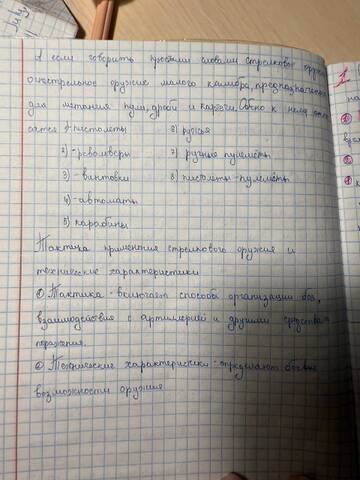 А если говорить простыми словами стрелковое оруж
огнестрельное оружие малого калибра, предназначенное
для метания пуль, дроби и картечи. Обычно к нему отно
сятся 1) пистолеты 6) ружья
2) - револьверы 7) ручные пулемёты
3) - винтовки 8) пистолеты - пулемёты
4) - автоматы
5) карабины
Тактика применения стрелкового оружия и
технические характеристики
① Тактика - включает способы организации боя,
взаимодействия с артиллерией и другими средствами
поражения.
② Технические характеристики - определяют боевые
возможности оружия